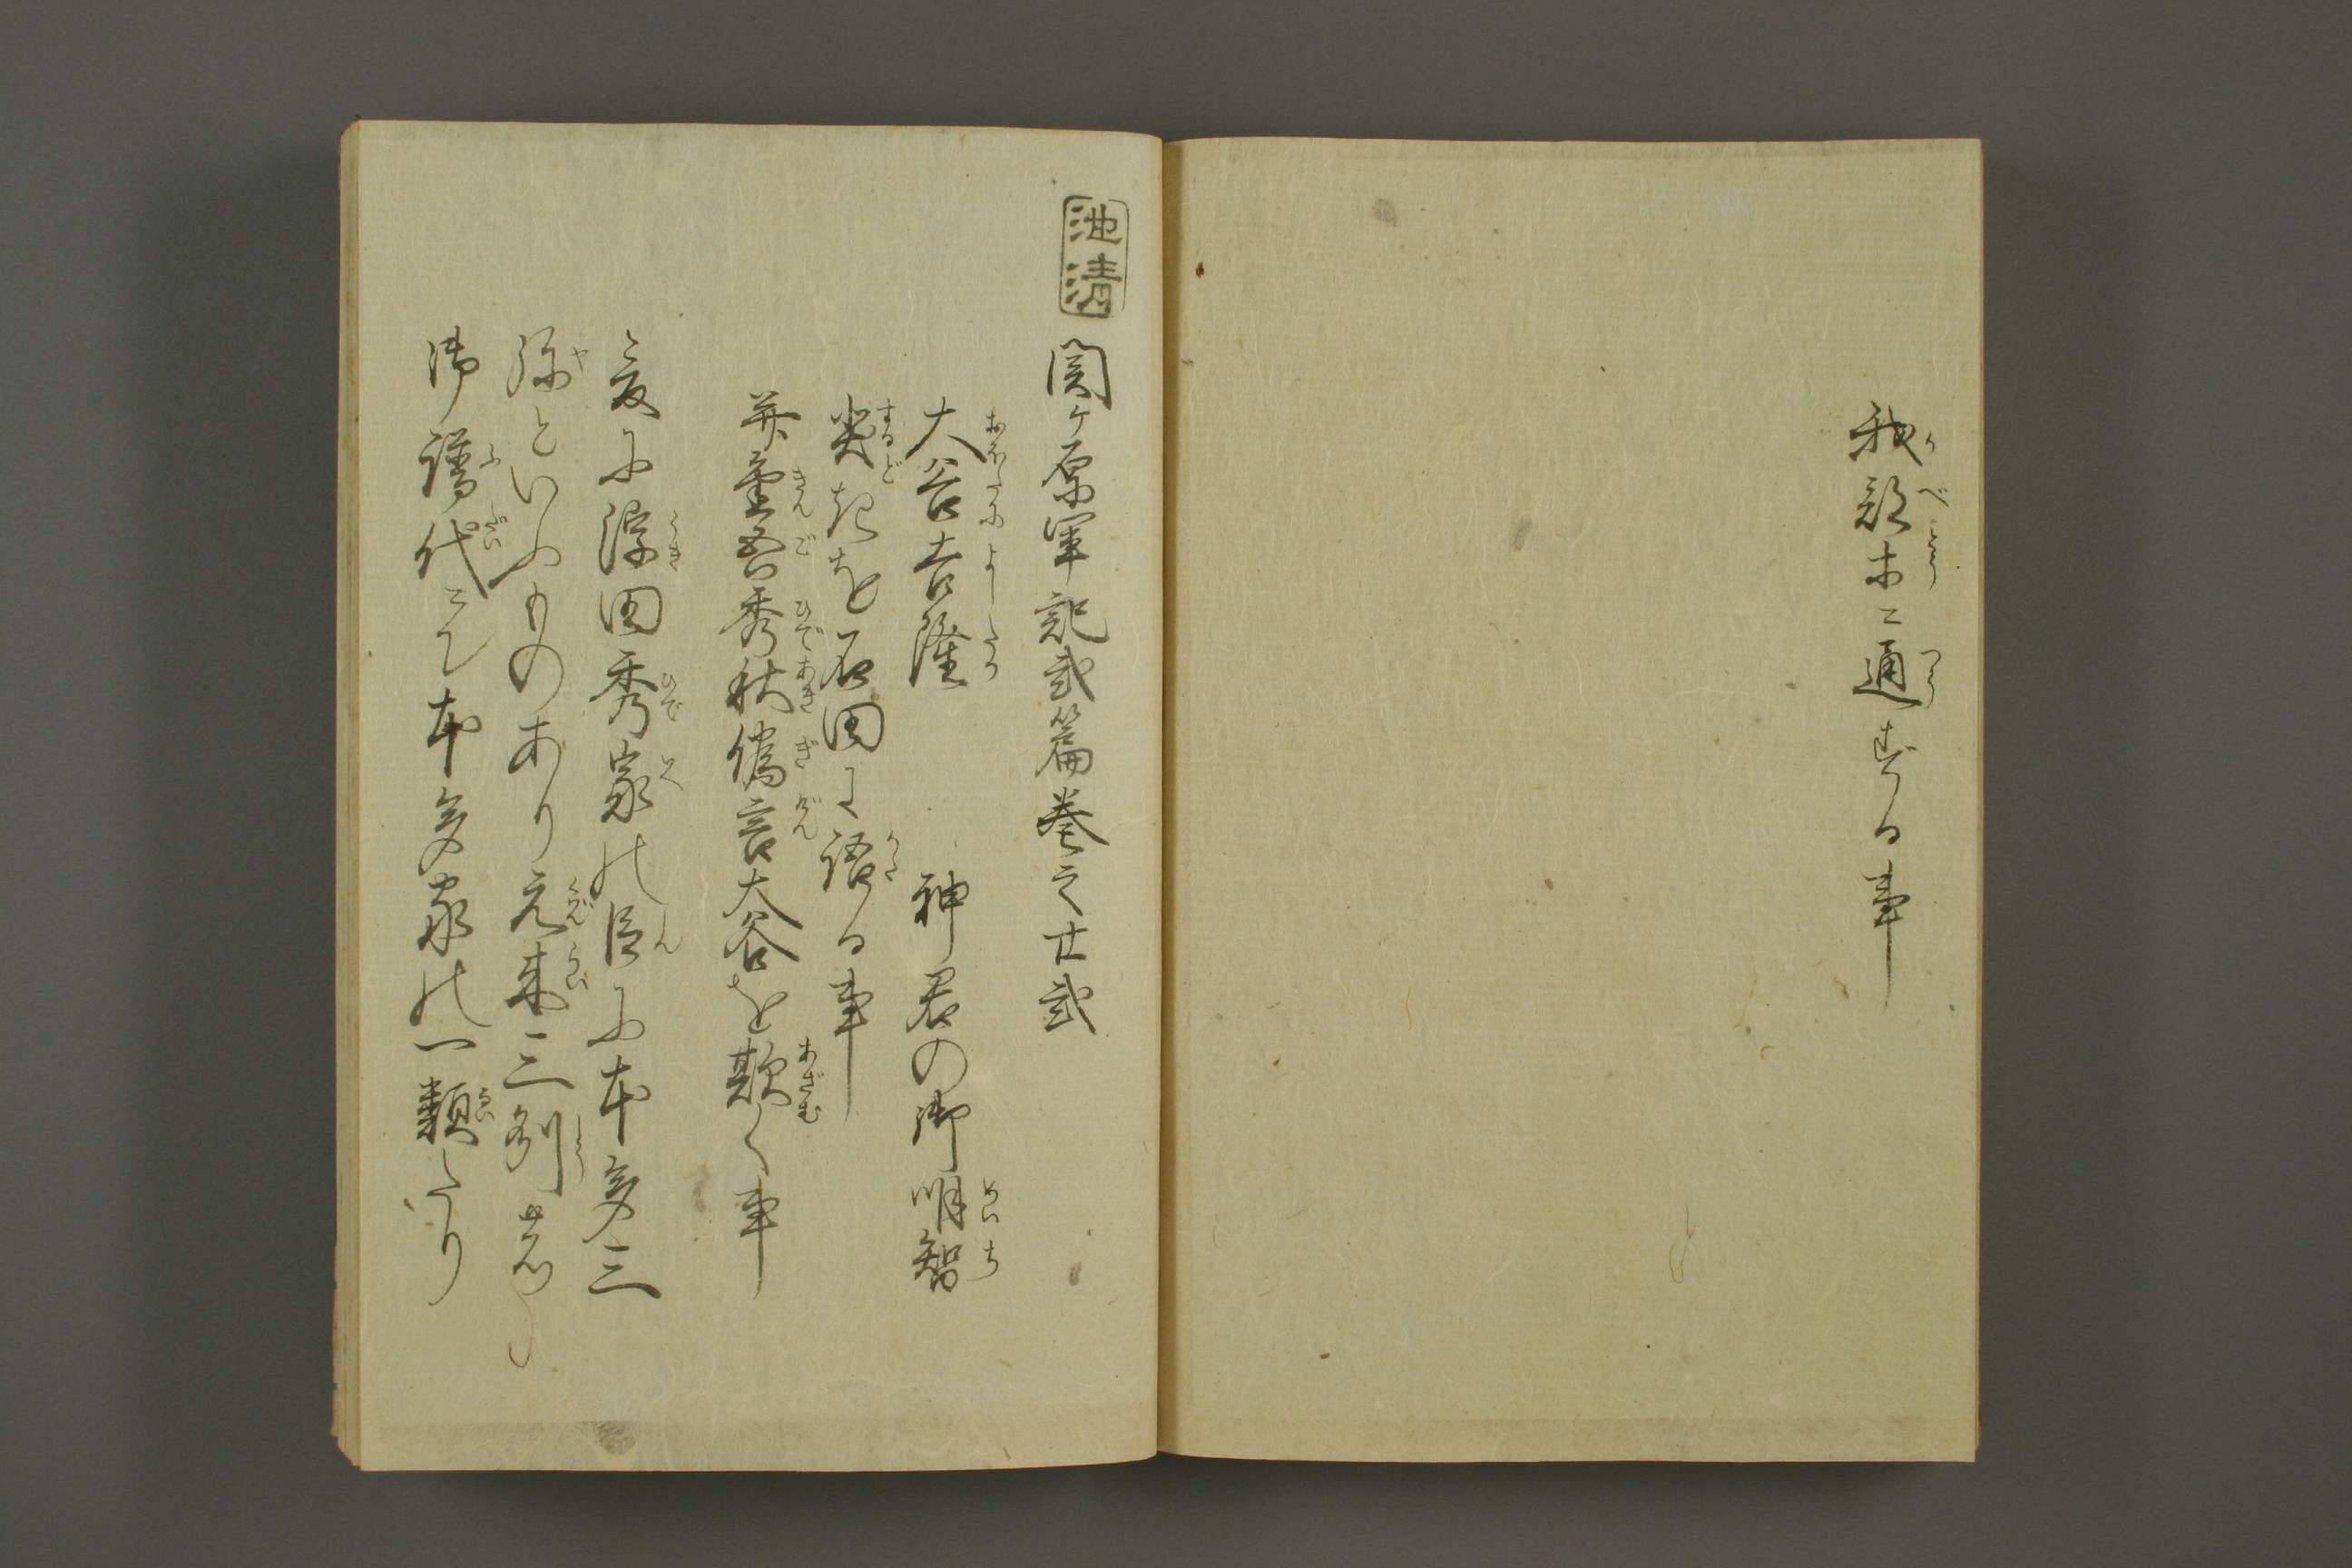 我部等ニ通ずる事
池清
関ヶ原軍記弐篇巻之廿弐
大谷吉隆　神君の御明智
鋭きを石田に語る事
并金吾秀秋偽言大谷を欺く事
爰に浮田秀家の臣に本多三
弥といふものあり元来三列
御譜代にて本多家の一類たり